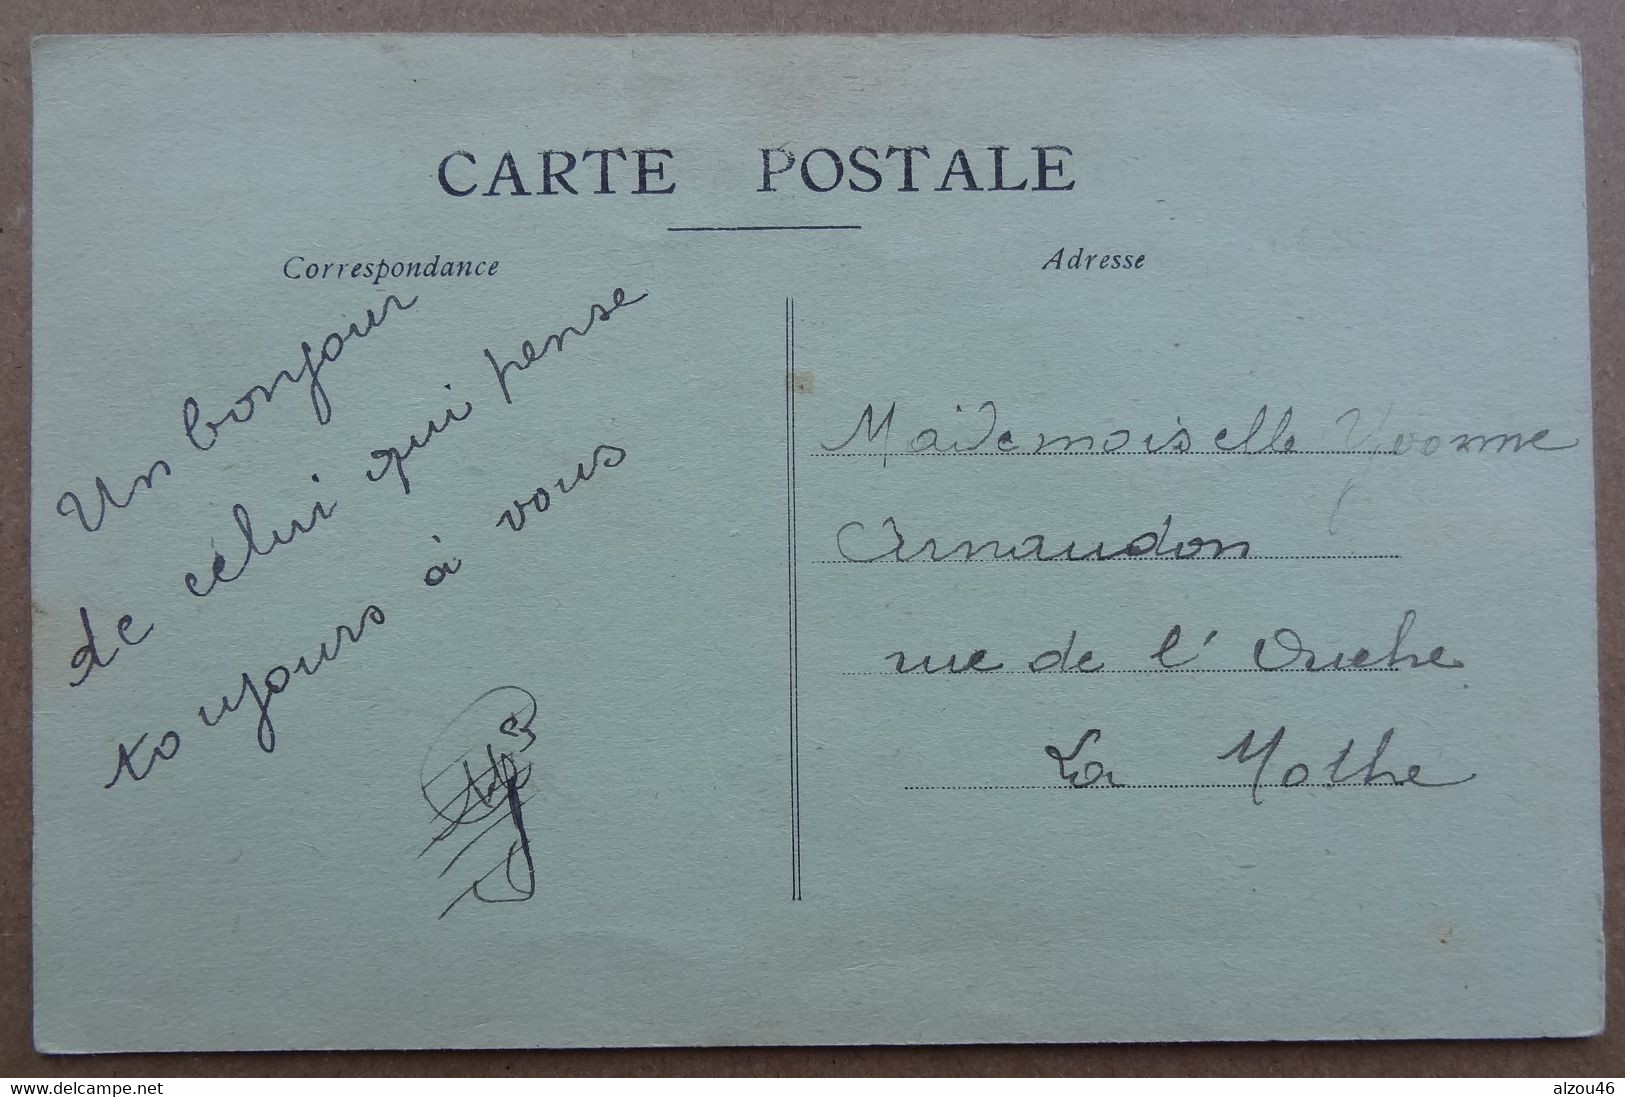 CARTE POSTALE
Correspondance
Un bonjour
de celui qui pense
toujours à vous
Adresse
Mademoiselle Yvonne
Arnaudon
rue de l'Ouche
La Mothe
www.delcampe.net
alzou46